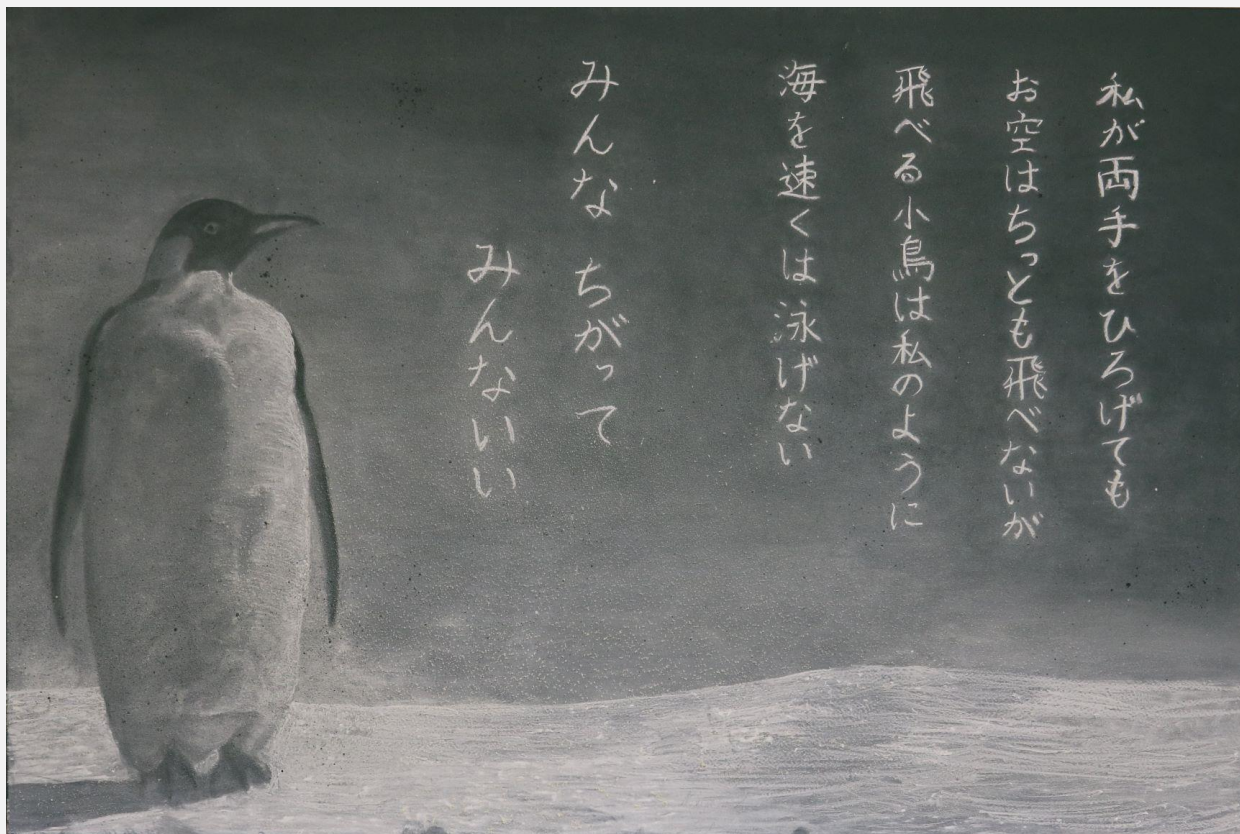 私が両手をひろげても
お空はちっとも飛べないが
飛べる小鳥は私のように
海を速くは泳げない
みんな ちがって
みんないい